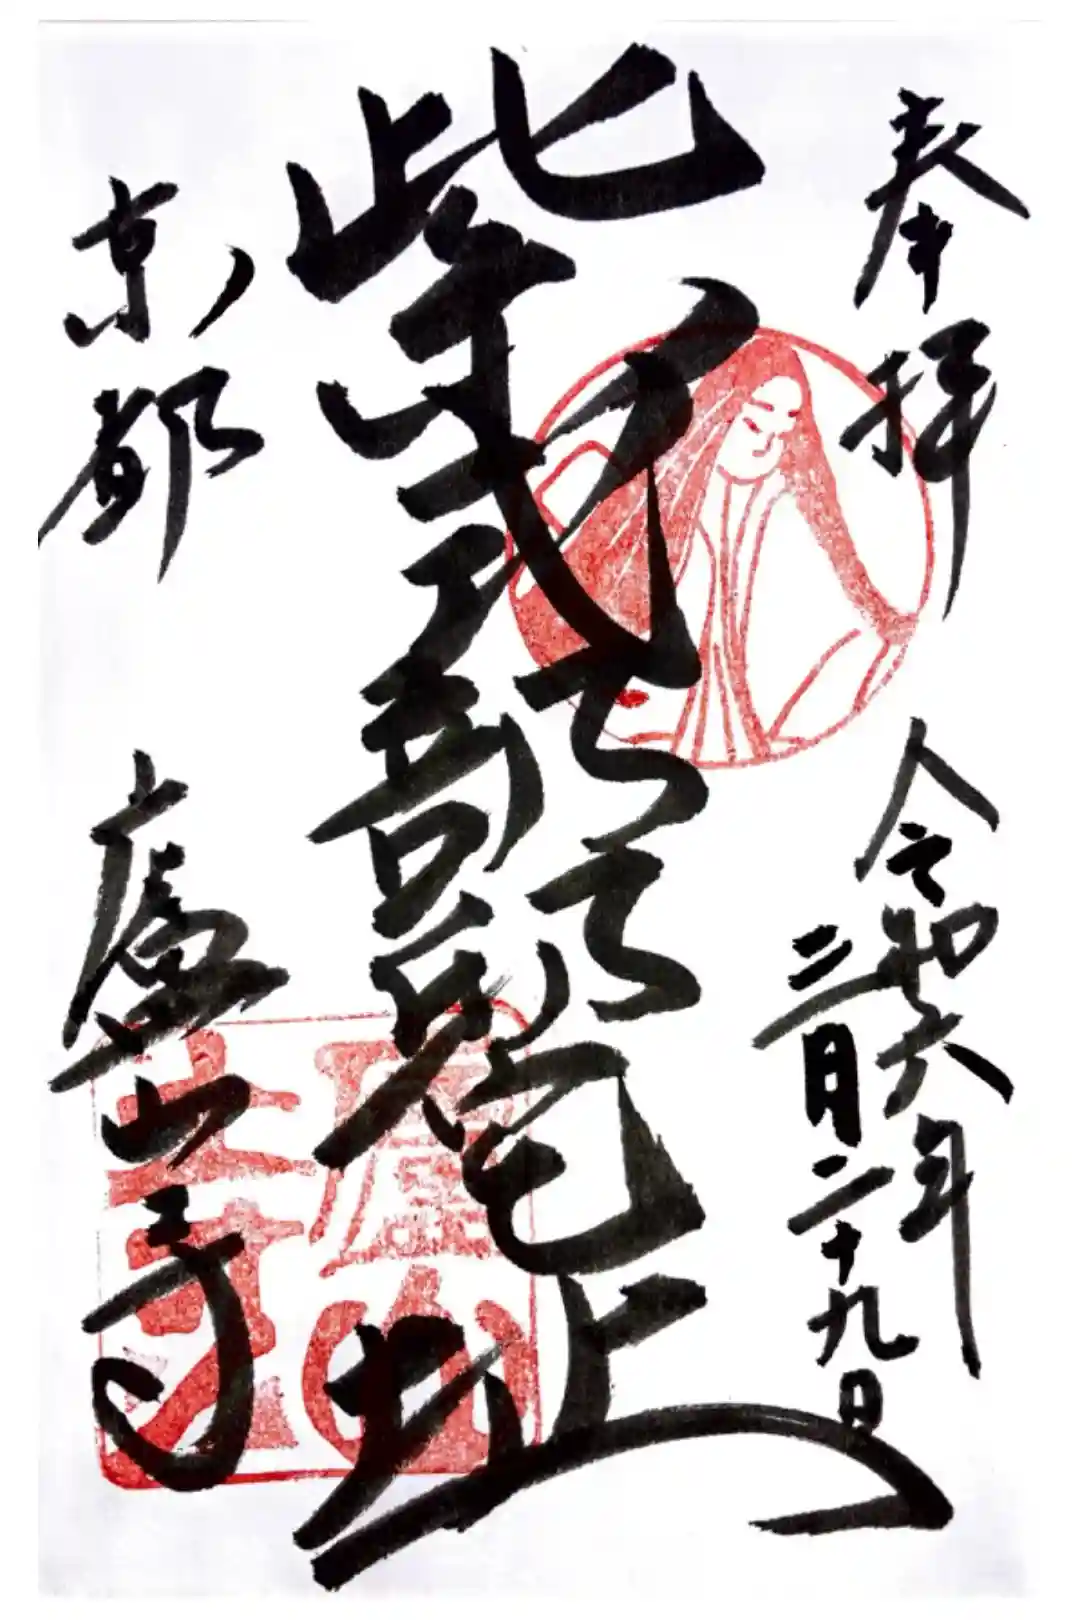 奉拝
令和六年
二月二十九日
紫式部邸宅址
京都
廬山寺
廬山
寺